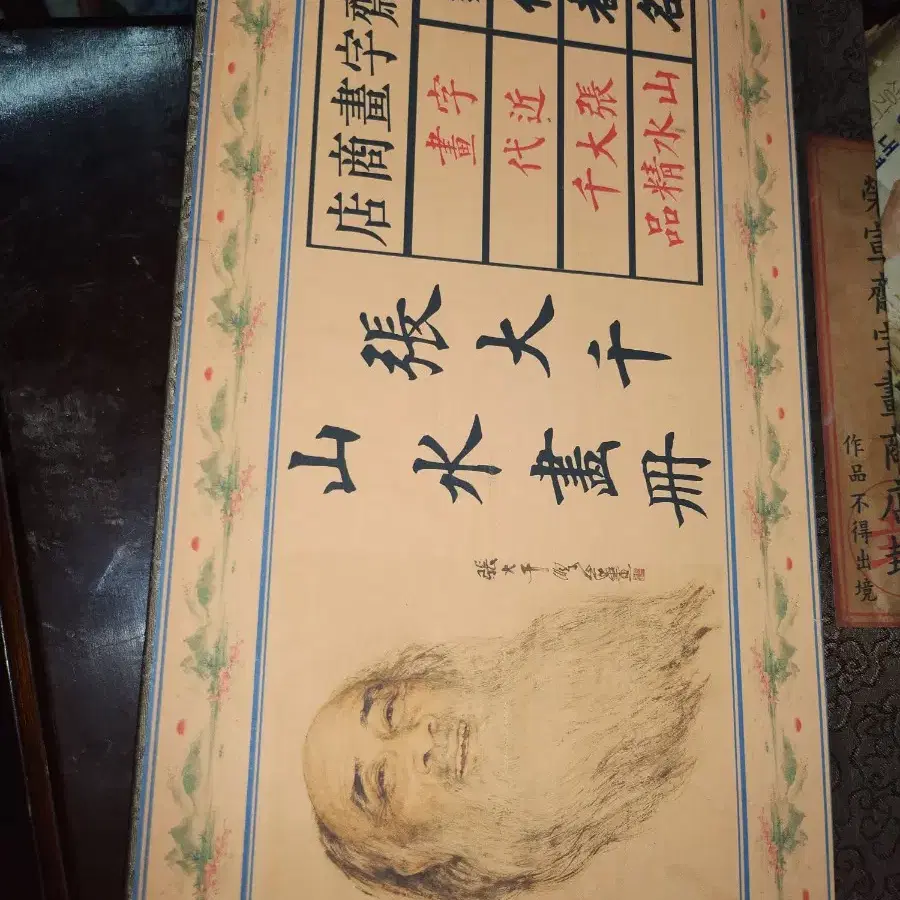 齋字畫商店
字畫
代 近代
者 張大千
名 山水精品
張大千
山水畫冊
張大千
商店封
作品不得出境